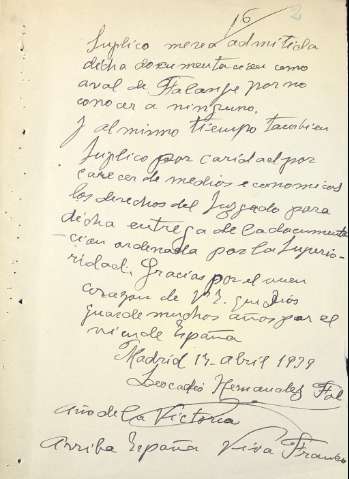 16 2
Suplico merea admitida
dicha documentacion como
aval de Falange por no
conocer a ninguno.
Y al mismo tiempo tambien
Suplico por caridad por
carecer de medios economicos
los derechos del Juzgado para
dicha entrega de la documenta
-cion ordenada por la Superio-
ridad. Gracias por el buen
corazon de V.E. que Dios
guarde muchos años por el
vien de España
Madrid 14 abril 1939
Leocadio Hernandez
Año de la Victoria
Arriba España Viva Franco